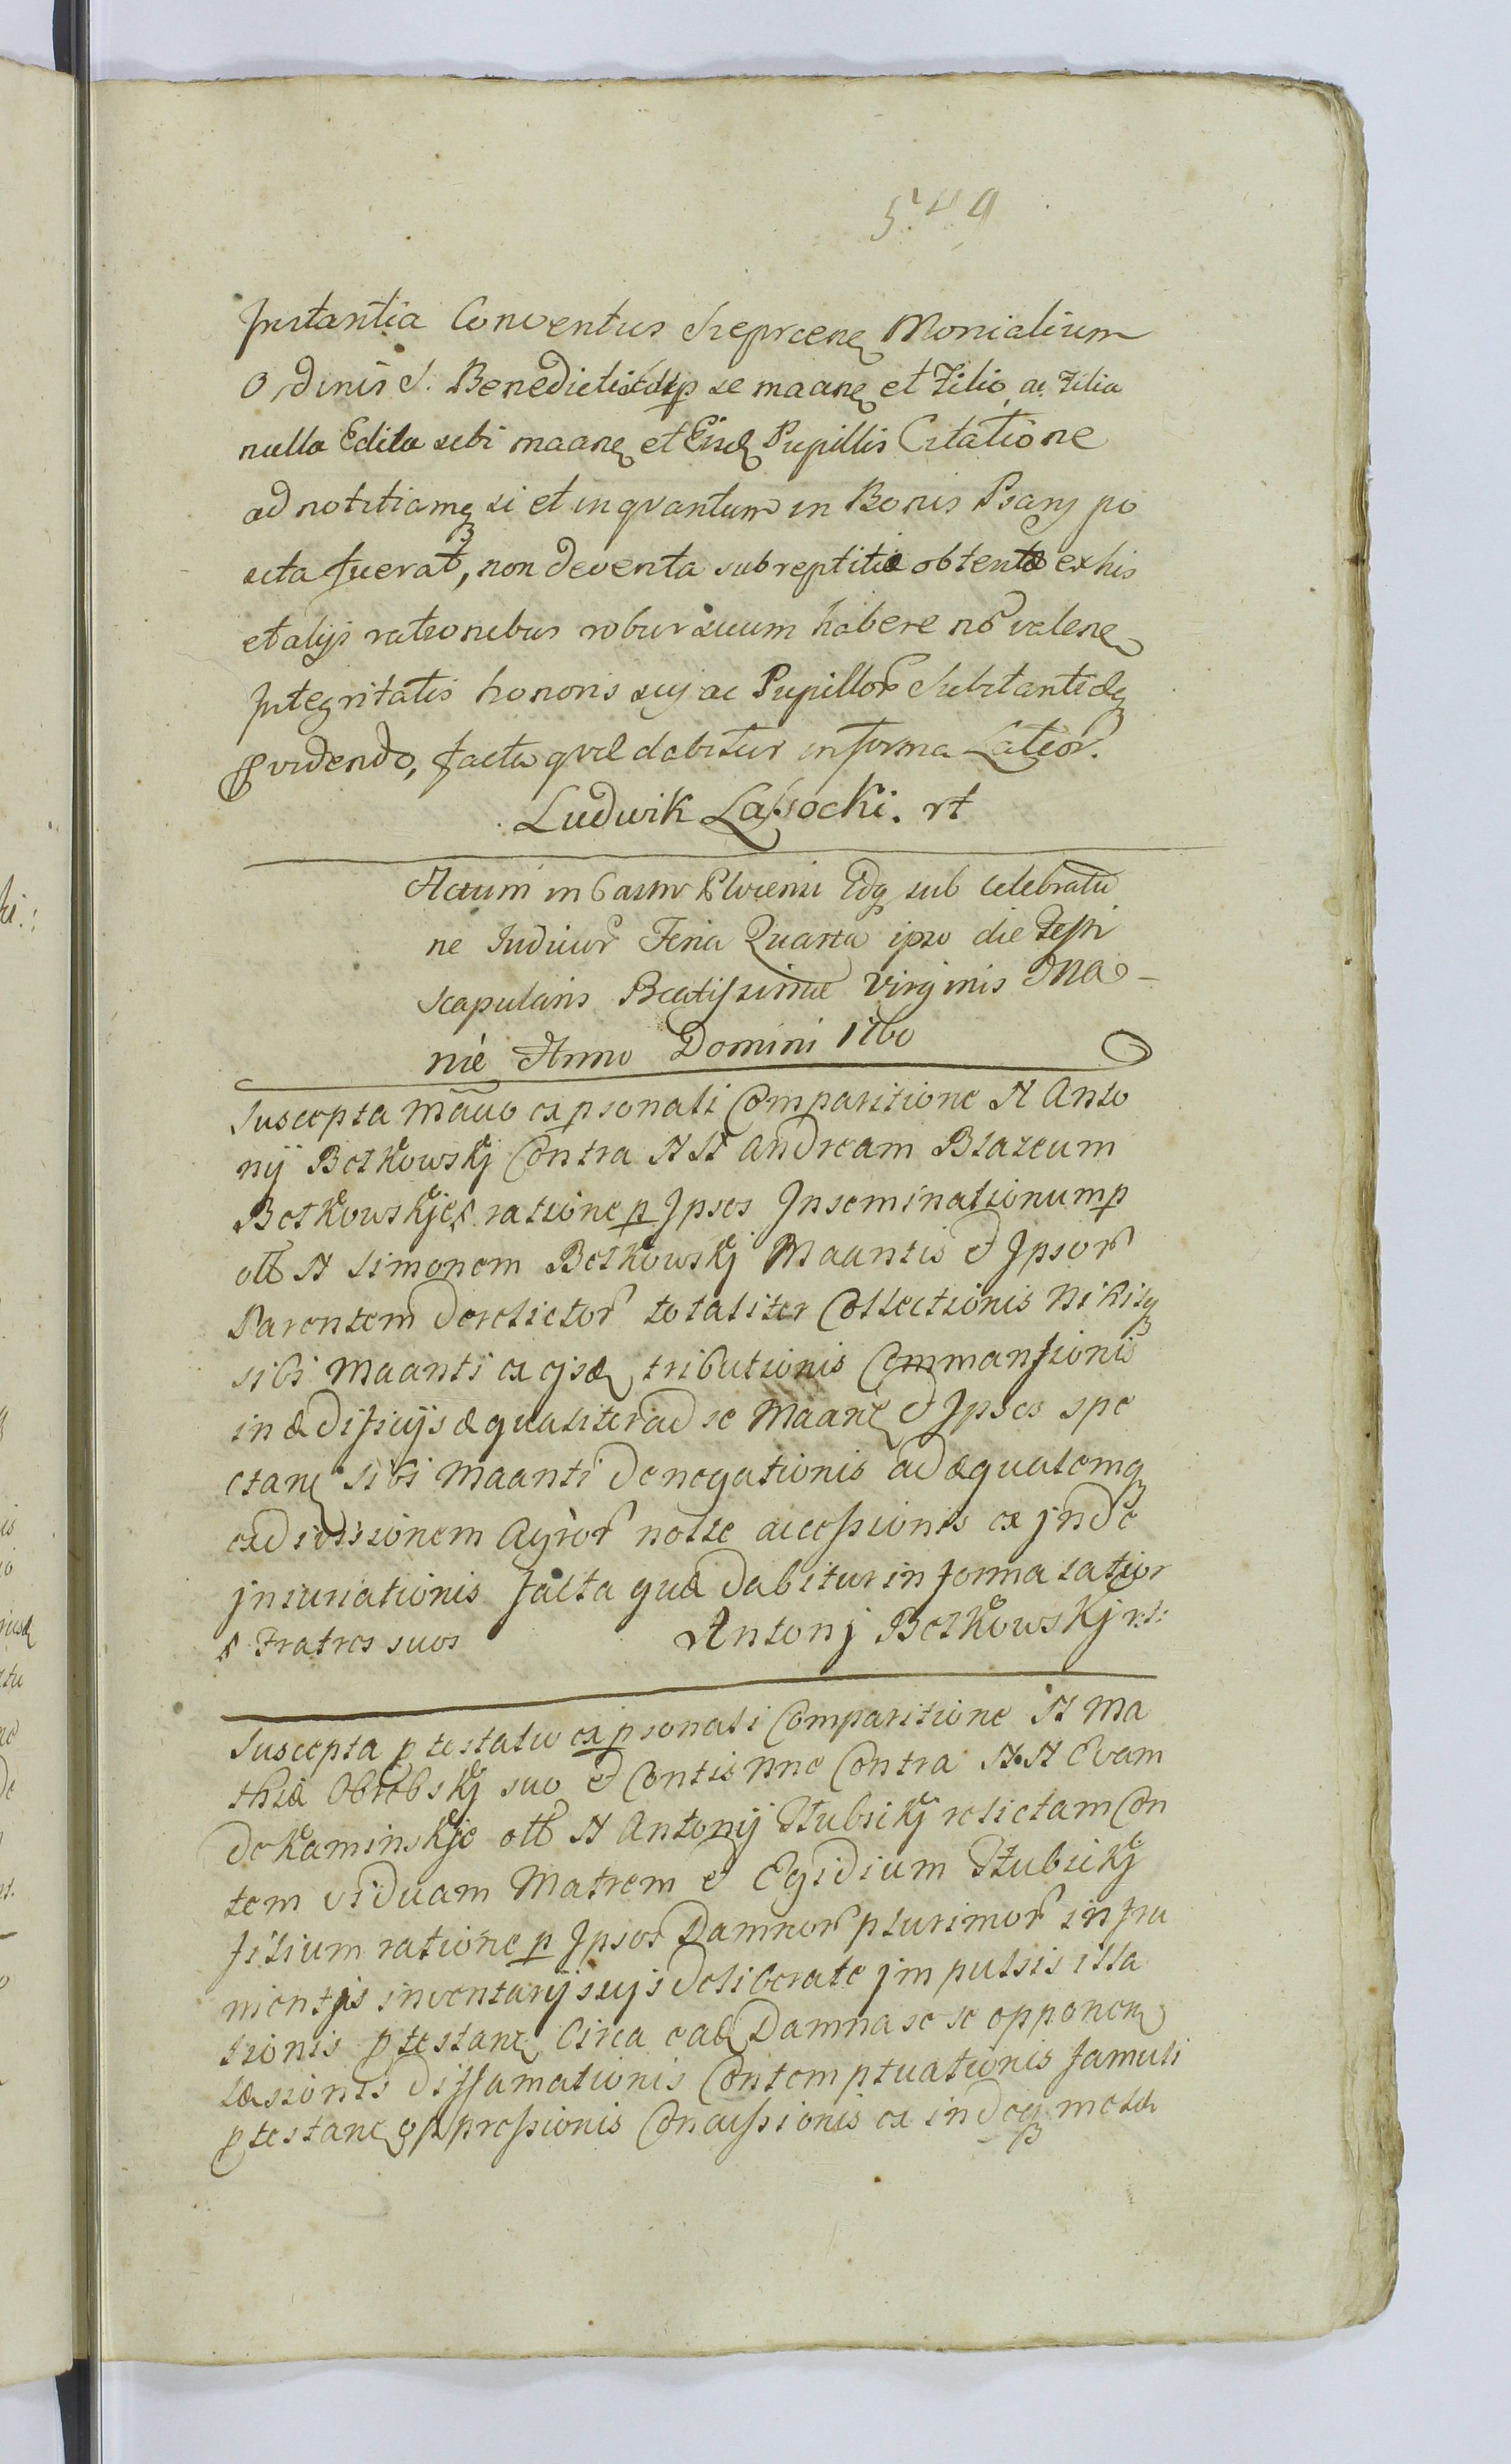 549
Instantia Conventus Sieprcen Monialium
Ordinis S. Benedicti se maane et Filio, ac Filia
nulla Edita sibi maane et Eisd Pupillis Citatione
ad notitiamq si et inqvantum in Bonis Psary po
sita fuerat, non deventa subreptitie obtenta ex his
et alijs rationibus robur suum habere no valen
Integritatis honoris suj ac Pupillor Substantiæq
pvidendo, facta qvæ dabitur in forma Latior.
Ludwik Lassocki. rt
Actum in Castro Plocensi Edq sub celebratio
ne Iudicior Feria Quarta ipso die Festi
Scapularis Beatissimæ Virginis Ma-
riæ Anno Domini 1760
Suscepta ex psonali Comparitione N Anto
nij Betkowskj Contra NN Andream Blazeum
Betkowskje ratione p Ipsos Inseminationum p
olb N Simonem Betkowskj Maantis et Ipsor
Parentem derelictor totaliter Collectionis Nihilq
sibi Maanti ex ejsd tributionis Commansionis
in ædificijs æqualiter ad se Maane et Ipsos spe
ctan sibi Maanti denegationis ad æqualemq
exdivisionem Agror nolle accessionis ex jnde
jnjuriationis facta quæ dabitur in forma latior
Fratres suos Antonj Betkowskj rt:
Suscepta ptestatio ex psonali Comparitione N Ma
thiæ Obrebskj suo et Contis nne Contra N.N Evam
de Kaminskje olb N Antonij relictam Con
tem viduam Matrem et Egidium
filium ratione p Ipsos Damnor plurimor in fru
mentjs inventarij sujs deliberate jmpulsis illa
tionis ptestane Circa ead Damna se se opponen
læsionis diffamationis Contemptuationis famuli
ptestane oppressionis Concussionis ex indeq